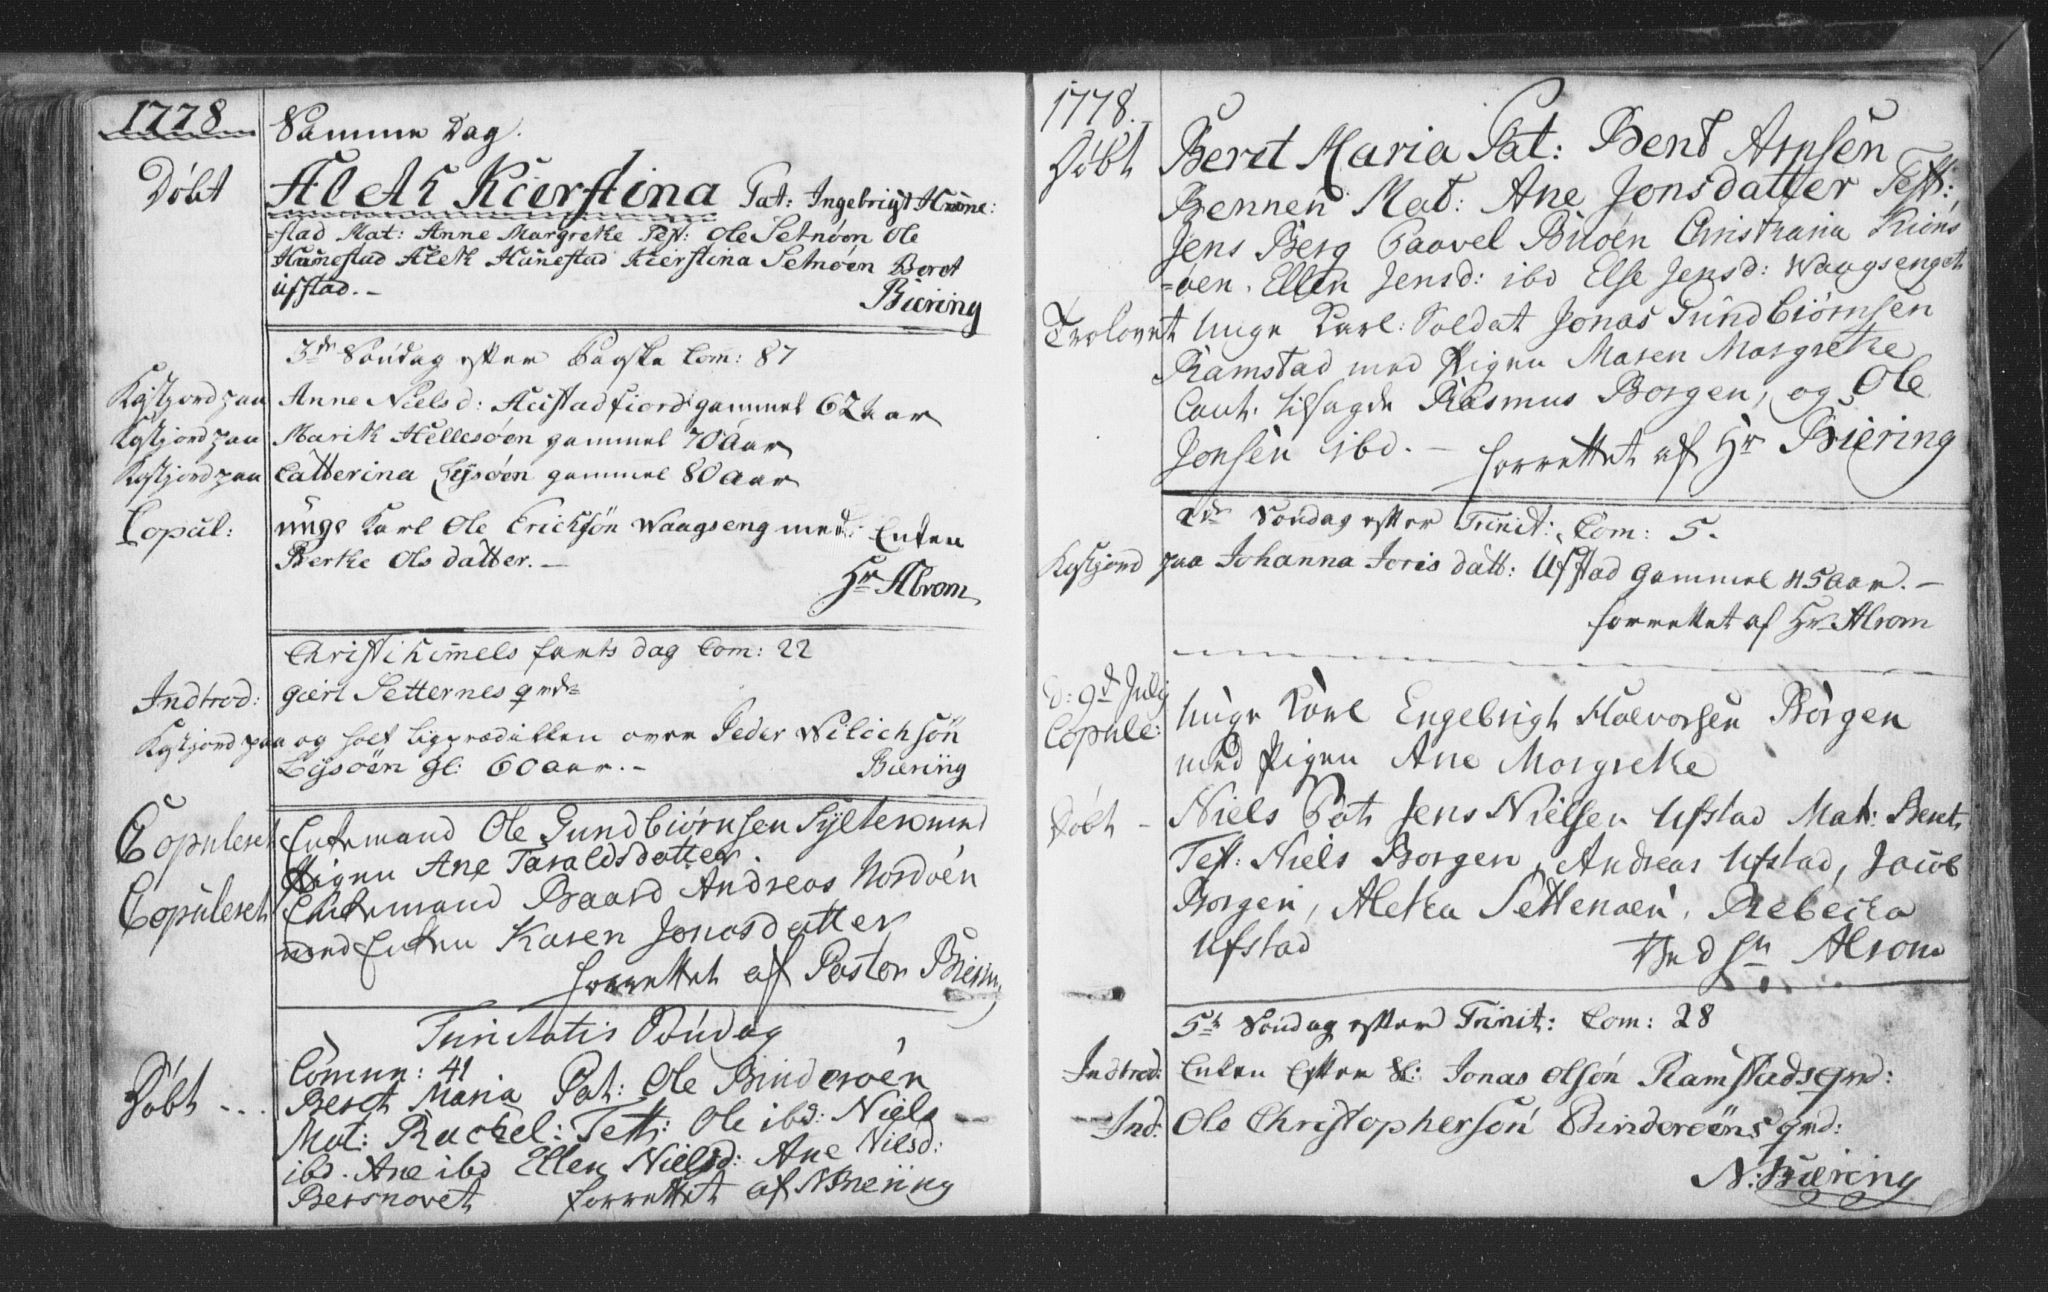 1778
Samme Dag.
Døbt Aleth Kierstina Pat: Ingebrigt Hune:
=stad Mat: Anne Margrethe Test: Ole Setnøen Ole
Hunestad Aleth Hunestad Kierstina Setnøen Beret
Ufstad.-
Biering
3de Søndag efter Paaske Com: 87
Kastjord paa Anne Nielsd: fiord gammel 62 aar
Kastjord paa Marith Hellesøen gammel 70 Aar
Kastjord paa Catterina Lysøen gammel 80 Aar
Copul: unge Karl Ole Erichsøn Waagseng med: Enken
Berthe Olsdatter.-
Hr Alrom
Christi himmels farts dag Com: 22
Indtrod: Setternes qvd:
Kastjord paa og holt ligprædikken over Peder
Lysøen gl: 60 aar.-
Biering
Copuleret Enkemand Ole Gundbiørnsen Sylten med
Pigen Ane Taraldsdatter.
Copuleret Enkemand Baard Andreas Nordøen
med Enken Karen Jonasdatter
forrettet af Pastor Biering
Trinitatis Søndag
Commun: 41
Døbt --- Beret Maria Pat: Ole Binderøen
Mat: Rachel: Test: Ole ibd: Niels
ibd. Ane ibd Ellen Nielsd: Ane Nilsd:
forrettet af N Biering
1778.
Døbt Beret Maria Pat: Bent Arnsen
Rennen Mat: Ane Jonsdatter Test:
Jens Berg Paavel Buøen Christiania
=øen. Ellen Jensd: ibd Else Jensd: Waagsenget
Trolovet Unge Karl: Soldat Jonas Gundbiørnsen
Ramstad med Pigen Maren Margrethe
Caut: tilsagde Rasmus Borgen, og Ole
Jonsen ibd. - forrettet af Hr Biering
2den Søndag efter Trinit: Com: 5.
Kastjord paa Johanna Joris datt: Ufstad gammel 45 aar.-
forrettet af Hr Alrom
D: 9d July
Copule: Unge Karl Engebrigt Halvorsen Borgen
med Pigen Ane Margrethe
Døbt - Niels Pat: Jens Nielsen Ufstad Mat: Beret
Test: Niels Borgen, Andreas Ufstad, Jacob
Borgen, Aletha Settenøen, Rebecka
Ufstad Ved Hr Alrom
5te Søndag efter Trinit: Com: 28
Indtrod: Enken Efter Sl: Jonas Olsøn Ramstads qvd:
Ind: Ole Christophersøn Binderøens qvd:
N: Biering